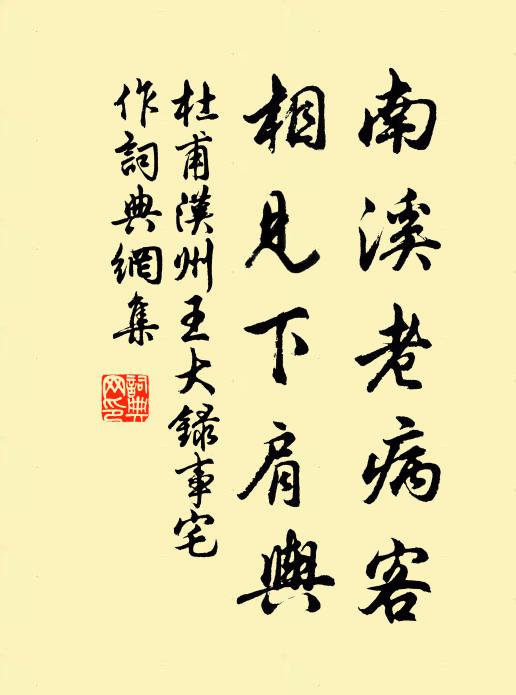 南溪老病客
相見下肩輿
杜甫漢州王大録事宅
作詞典網集
詞典
网印